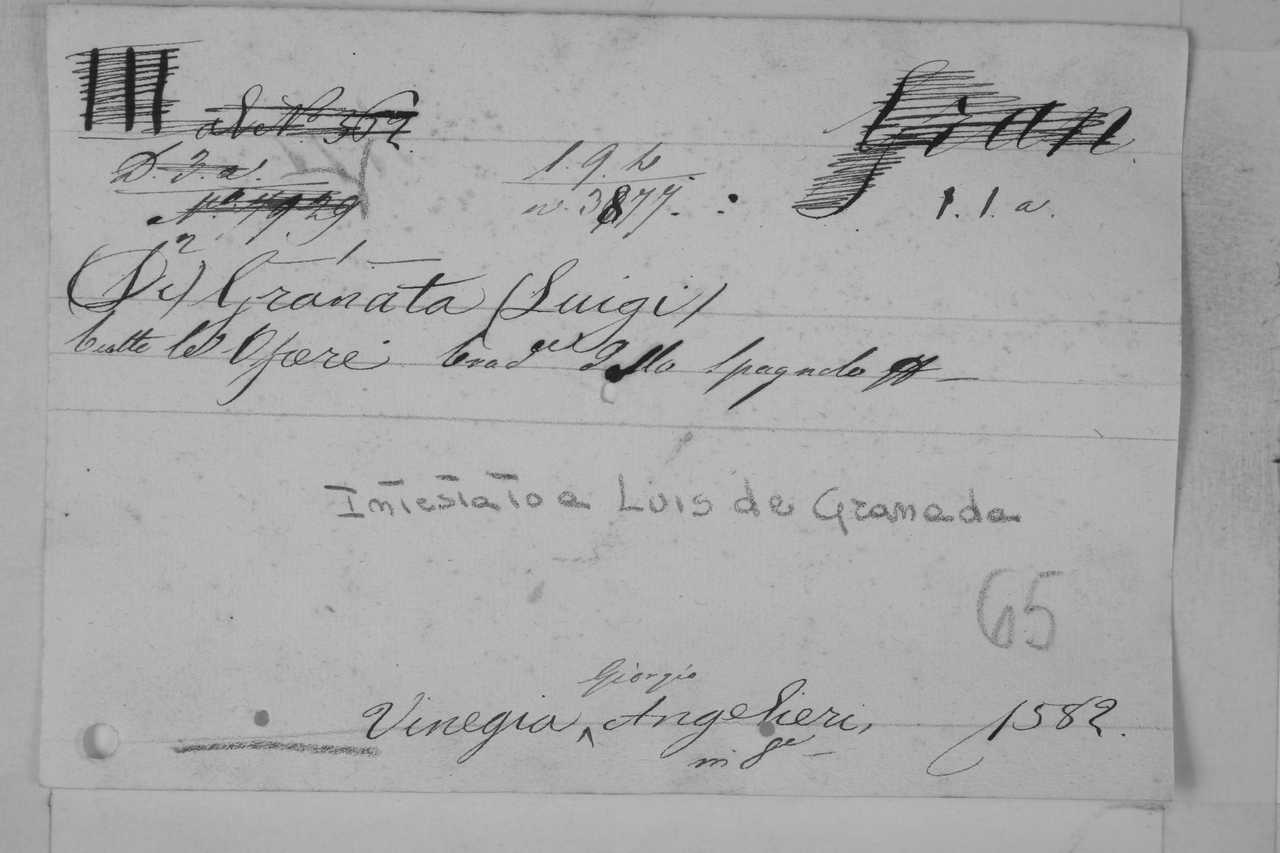 III
Gran
D. 3 a.
1. 9. b
N.º 1929
n. 3877.
1. 1. a.
(Di) Granata (Luigi)
Tutte le Opere trad. dallo Spagnolo
Intestato a Luis de Granada
65
Giorgio
Vinegia, Angelieri, 1582.
in 8º